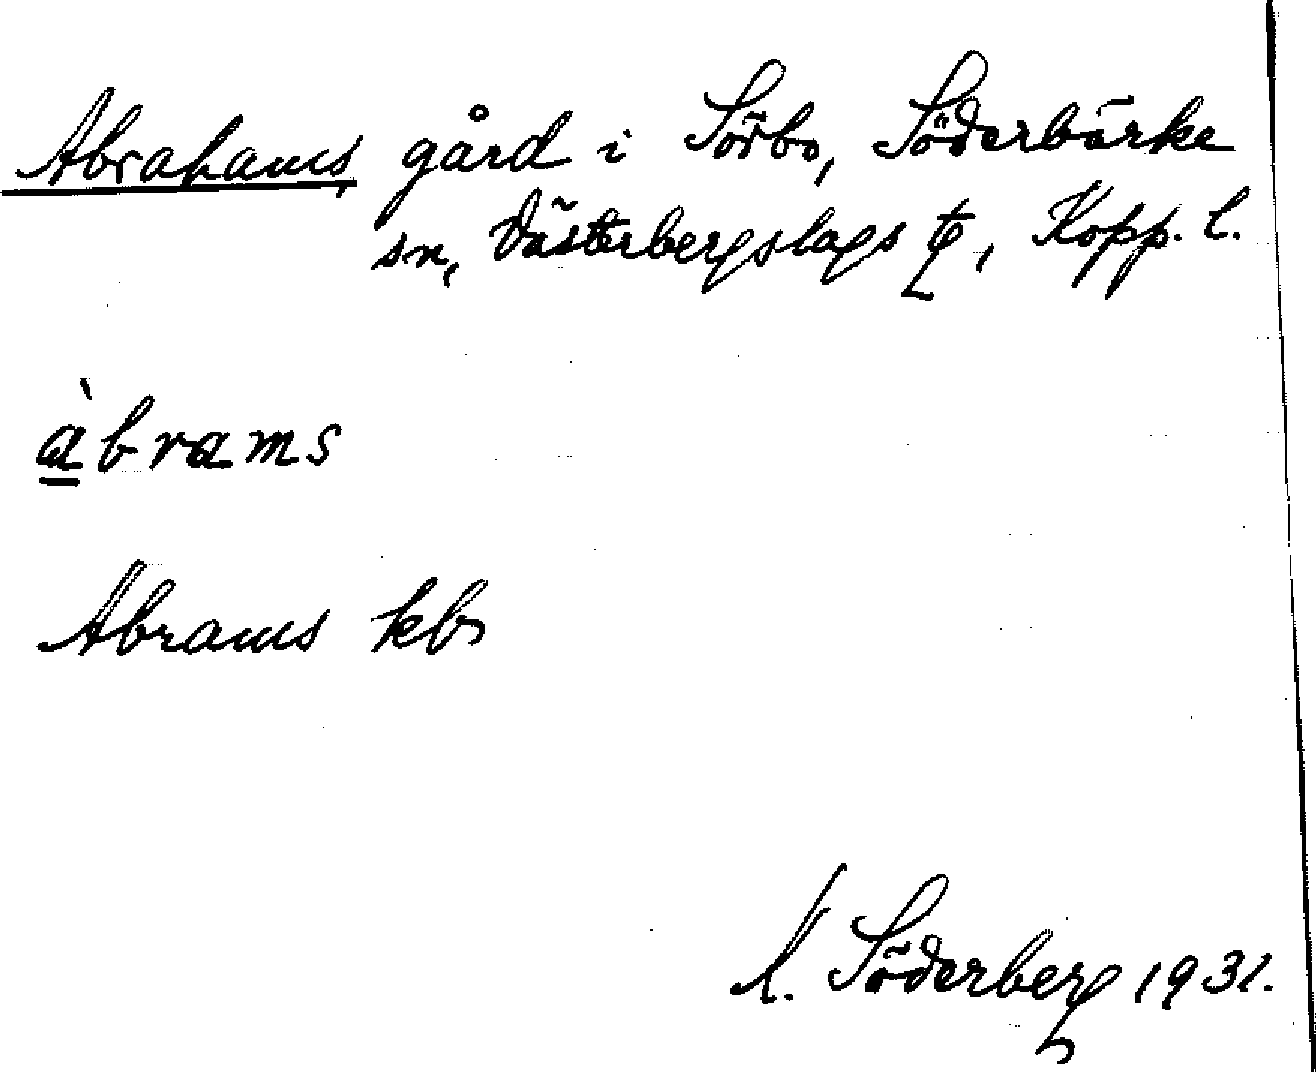 Abrahams, gård i Sörbo, Söderbärke
sn, Västerbergslags tg, Kopp. l.
àbrams
Abrams kbr
A. Söderberg 1931.